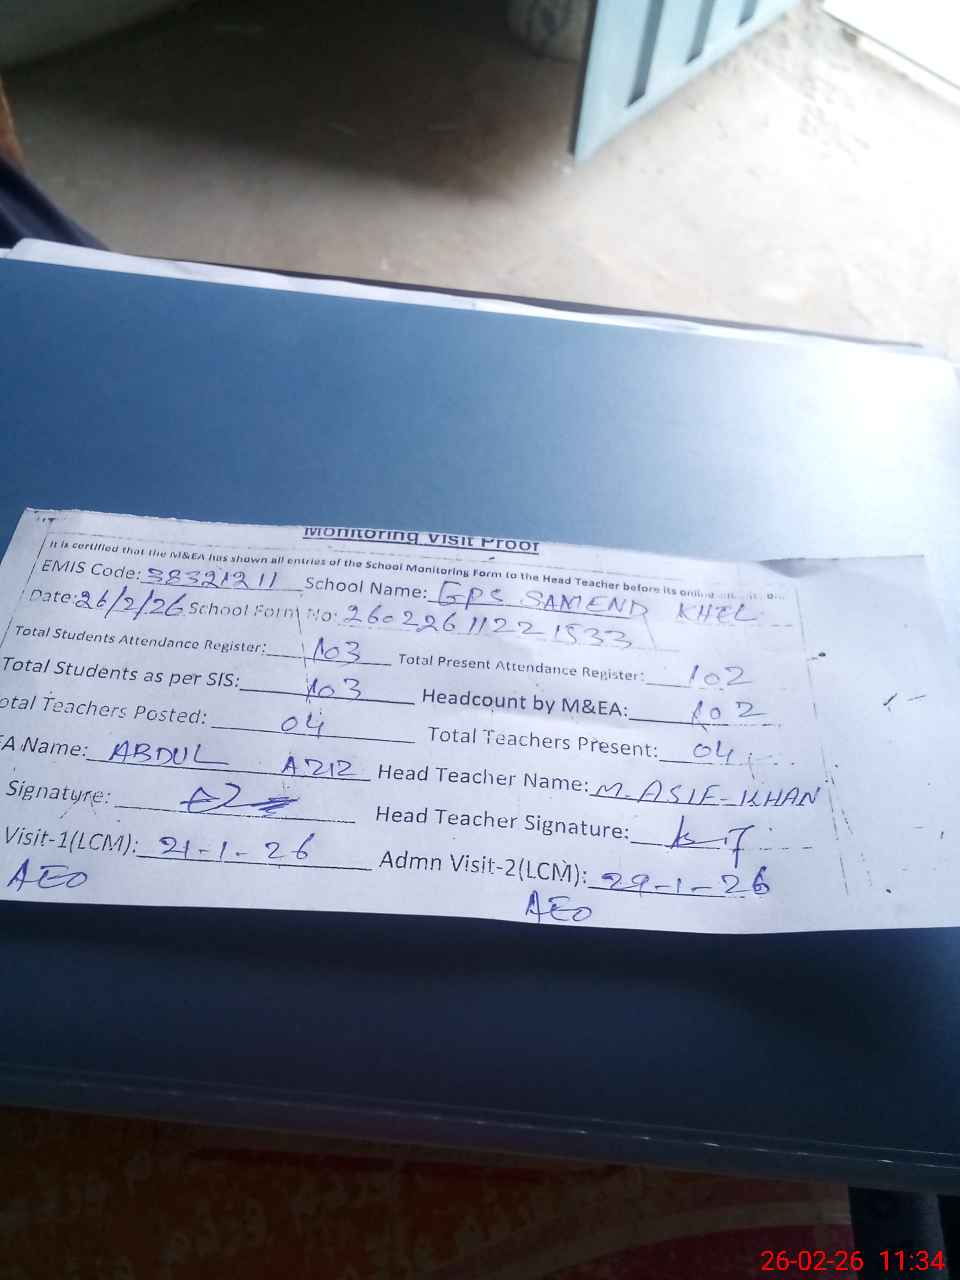 Monitoring Visit Proof
It is certified that the M&EA has shown all entries of the School Monitoring Form to the Head Teacher before its online
EMIS Code: 38321211 School Name: GPS SAMEND KHEL
Date: 26/2/26 School Form No: 26022611221533
Total Students Attendance Register: 103 Total Present Attendance Register: 102
Total Students as per SIS: 103 Headcount by M&EA: 102
otal Teachers Posted: 04 Total Teachers Present: 04
EA Name: ABDUL AZIZ Head Teacher Name: M. ASIF-KHAN
Signature: Head Teacher Signature:
Visit-1(LCM): 21-1-26 Admn Visit-2(LCM): 29-1-26
AEO AEO
26-02-26 11:34